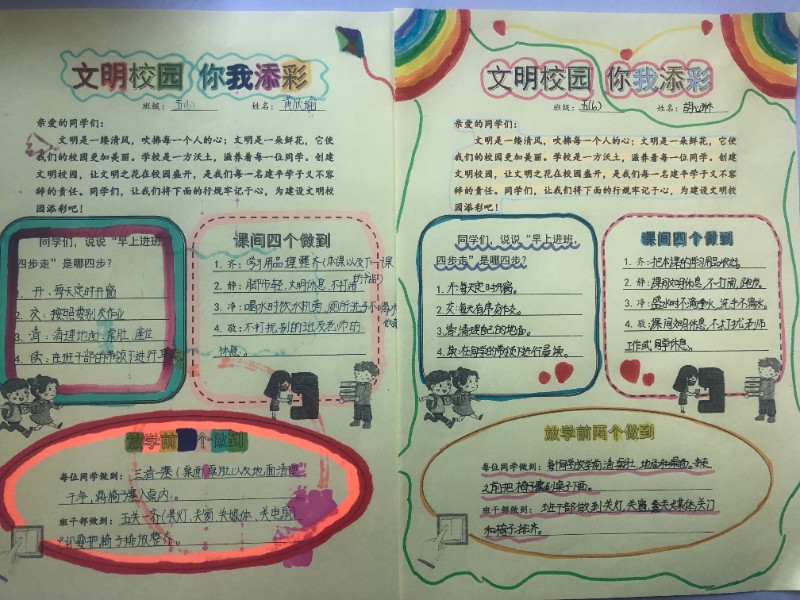 文明校园 你我添彩
班级：五(1) 姓名：
亲爱的同学们：
文明是一缕清风，吹拂每一个人的心；文明是一朵鲜花，它使
我们的校园更加美丽。学校是一方沃土，滋养着每一位同学。创建
文明校园，让文明之花在校园盛开，是我们每一名建平学子义不容
辞的责任。同学们，让我们将下面的行规牢记于心，为建设文明校
园添彩吧！
同学们，说说“早上进班，
四步走”是哪四步？
1. 开：每天定时开窗
2. 交：按照类别交作业
3. 清：清理地面、桌肚、座位
4. 读：在班干部的带领下进行早读
课间四个做到
1. 齐：学习用品摆整齐(本课以及下一课
2. 静：脚步轻，文明休息，不打闹
3. 净：喝水时饮水机旁，厕所洗手不
4. 敬：不打扰别的班及老师的
休息。
放学前个做到
每位同学做到：三清
干净，将椅子塞入桌内。
班干部做到：五关一齐(关灯、关窗、关媒体、关电扇
还要把椅子排放整齐。
文明校园 你我添彩
班级：五(6) 姓名：
亲爱的同学们：
文明是一缕清风，吹拂每一个人的心；文明是一朵鲜花，它使
我们的校园更加美丽。学校是一方沃土，滋养着每一位同学。创建
文明校园，让文明之花在校园盛开，是我们每一名建平学子义不容
辞的责任。同学们，让我们将下面的行规牢记于心，为建设文明校
园添彩吧！
同学们，说说“早上进班，
四步走”是哪四步？
1. 开：每天定时开窗。
2. 交：每天有序交作业。
3. 清：清理自己的地面。
4. 读：在同学的带领下进行晨读。
课间四个做到
1. 齐：把本课的学习用品
2. 静：课间文明休息，不打闹，
3. 净：盛水时不滴水，洗手不滴水。
4. 敬：课间文明休息，不打扰老师
工作或同学休息。
放学前两个做到
每位同学做到：每个同学放学前清桌肚、地面和桌面，
又把椅子塞到桌子下面。
班干部做到：班干部做到关灯、关窗、关多媒体、关门
和椅子排齐。